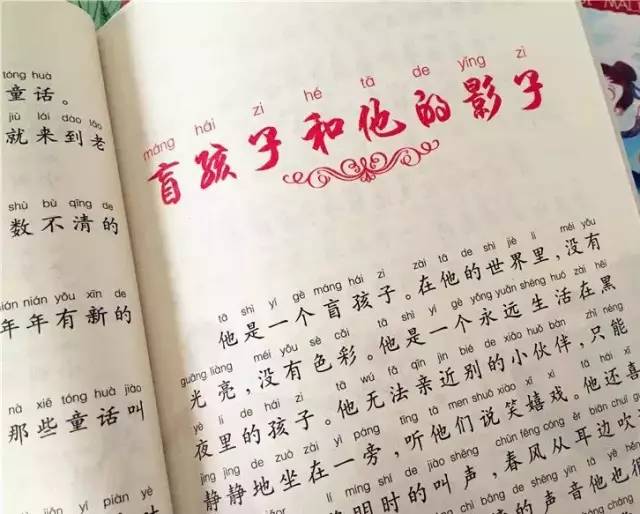 tóng huà
童话。
jiù lái dào lǎo
就来到老
shǔ bù qīng de
数不清的
nián nián yǒu xīn de
年年有新的
nà xiē tóng huà jiào
那些童话叫
yí piàn yè
máng hái zi hé tā de yǐng zi
盲孩子和他的影子
tā shì yí gè máng hái zi zài tā de shì jiè li méi yǒu
他是一个盲孩子。在他的世界里,没有
guāng liàng méi yǒu sè cǎi tā shì yí gè yǒng yuǎn shēng huó zài hēi
光亮,没有色彩。他是一个永远生活在黑
yè li de hái zi tā wú fǎ qīn jìn bié de xiǎo huǒ bàn zhǐ néng
夜里的孩子。他无法亲近别的小伙伴,只能
jìng jìng de zuò zài yì páng tīng tā men shuō xiào xī xì tā hái xǐ
静静地坐在一旁,听他们说笑嬉戏。他还喜
lí míng shí de jiào shēng chūn fēng cóng ěr biān chuī
黎明时的叫声,春风从耳边吹
chì bǎng de shēng yīn tā yě
的声音他也